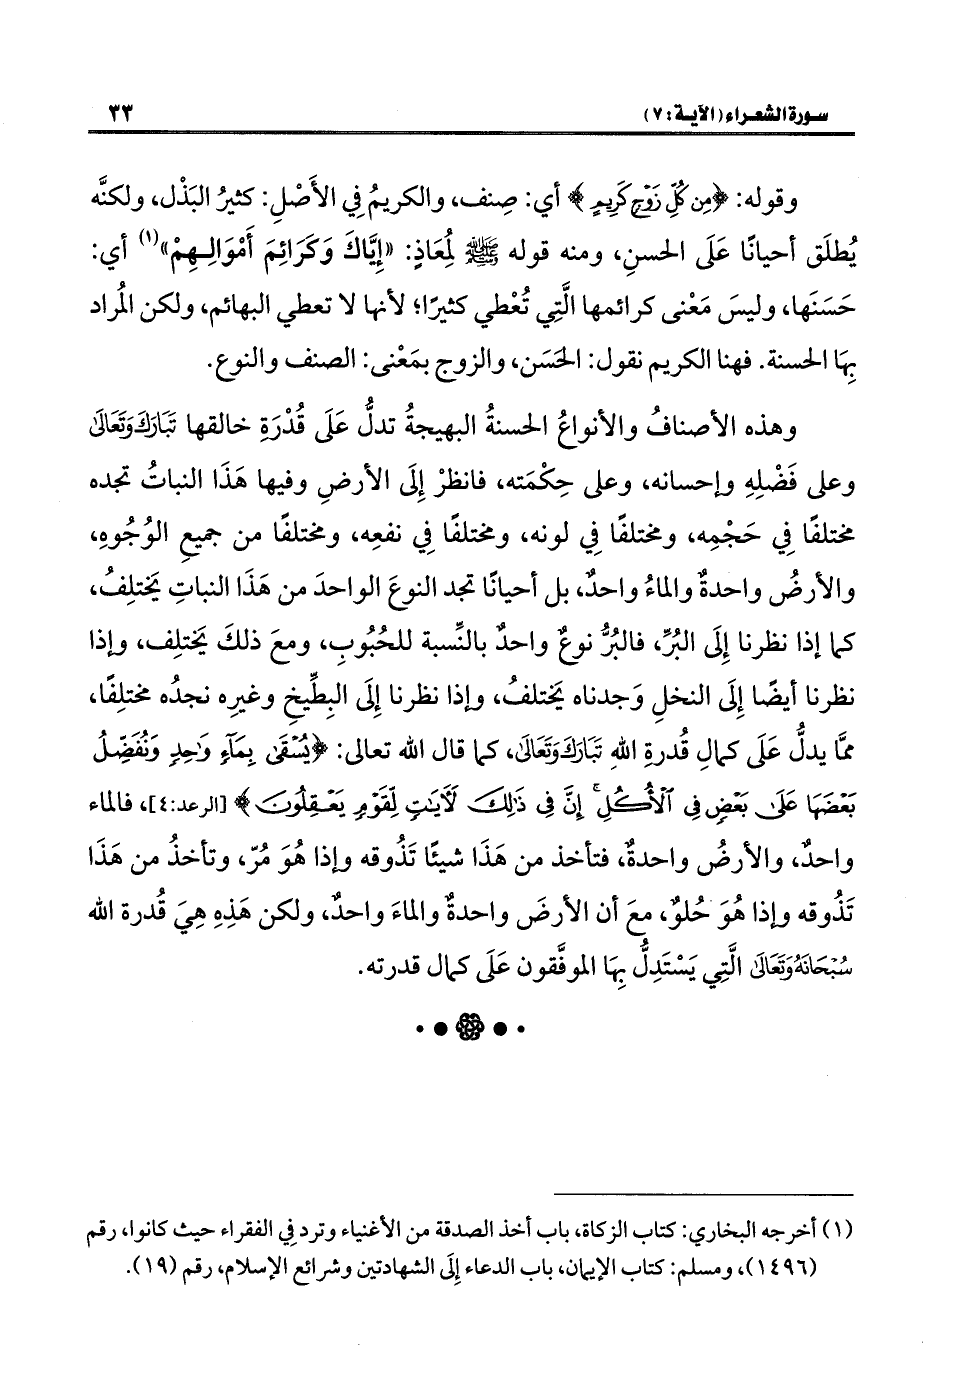 سورة الشعراء (الآية: ٧) ٣٣
وقوله: ﴿مِن كُلِّ زَوْجٍ كَرِيمٍ﴾ أي: صِنف، والكريمُ في الأَصْلِ: كثيرُ البَذْل، ولكنَّه
يُطلَق أحيانًا عَلَى الحسنِ، ومنه قوله ﷺ لِمُعَاذٍ: «إِيَّاكَ وَكَرَائِمَ أَمْوَالِهِمْ»(١) أي:
حَسَنَها، وليسَ مَعْنى كرائمها الَّتِي تُعْطي كثيرًا؛ لأنها لا تعطي البهائم، ولكن المُراد
بِهَا الحسنة. فهنا الكريم نقول: الحَسَن، والزوج بمَعْنى: الصنف والنوع.
وهذه الأصنافُ والأنواعُ الحسنةُ البهيجةُ تدلُّ عَلَى قُدْرَةِ خالقها تَبَارَكَ وَتَعَالَى
وعلى فَضْلِهِ وإحسانه، وعلى حِكْمَته، فانظرْ إِلَى الأرضِ وفيها هَذَا النباتُ تجده
مختلفًا فِي حَجْمِه، ومختلفًا فِي لونه، ومختلفًا فِي نفعِه، ومختلفًا من جميعِ الوُجُوهِ،
والأرضُ واحدةٌ والماءُ واحدٌ، بل أحيانًا تجد النوعَ الواحدَ من هَذَا النباتِ يختلِفُ،
كما إذا نظرنا إِلَى البُرِّ، فالبُرُّ نوعٌ واحدٌ بالنِّسبة للحُبُوبِ، ومعَ ذلكَ يَختلِف، وإذا
نظرنا أيضًا إِلَى النخلِ وَجدناه يَختلفُ، وإذا نظرنا إِلَى البِطِّيخِ وغيرِه نجدُه مختلفًا،
ممَّا يدلُّ عَلَى كمالِ قُدرةِ اللهِ تَبَارَكَ وَتَعَالَى، كما قال الله تعالى: ﴿يُسْقَىٰ بِمَآءٍ وَٰحِدٍ وَنُفَضِّلُ
بَعْضَهَا عَلَىٰ بَعْضٍ فِي ٱلْأُكُلِ ۚ إِنَّ فِي ذَٰلِكَ لَآيَٰتٍ لِّقَوْمٍ يَعْقِلُونَ﴾ [الرعد:٤]، فالماء
واحدٌ، والأرضُ واحدةٌ، فتأخذ من هَذَا شيئًا تَذُوقه وإذا هُوَ مُرّ، وتأخذُ من هَذَا
تَذُوقه وإذا هُوَ حُلوٌ، معَ أن الأرضَ واحدةٌ والماءَ واحدٌ، ولكن هَذِهِ هِيَ قُدرة الله
سُبْحَانَهُ وَتَعَالَى الَّتِي يَسْتَدِلُّ بِهَا الموفَّقون عَلَى كمال قدرته.
(١) أخرجه البخاري: كتاب الزكاة، باب أخذ الصدقة من الأغنياء وترد فِي الفقراء حيث كانوا، رقم
(١٤٩٦)، ومسلم: كتاب الإيمان، باب الدعاء إِلَى الشهادتين وشرائع الإسلام، رقم (١٩).